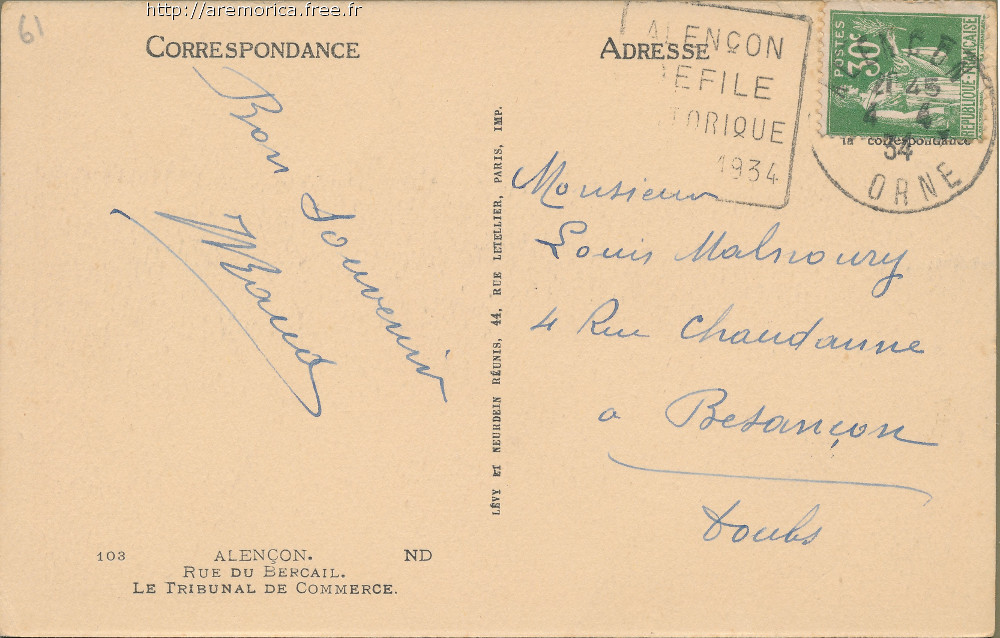 http://aremorica.free.fr
61
CORRESPONDANCE
ADRESSE
ALENÇON
EFILE
TORIQUE
1934
POSTES
30c
REPUBLIQUE-FRANÇAISE
21 45
4 4
34
ORNE
la correspondance
Bon Souvenir
Monsieur
Louis Malnoury
4 Rue Chaudanne
a Besançon
Doubs
LÉVY ET NEURDEIN RÉUNIS, 44, RUE LETELLIER, PARIS, IMP.
103 ALENÇON. ND
RUE DU BERCAIL.
LE TRIBUNAL DE COMMERCE.